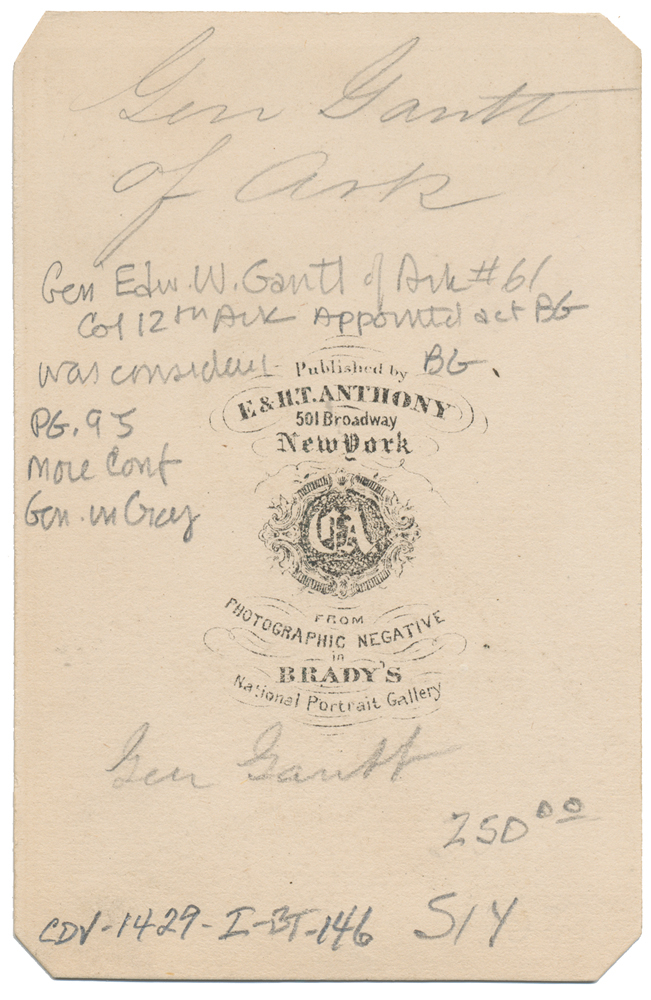 Gen Gantt
of Ark
Gen Edw. W. Gantt of Ark #61
Col 12th Ark Appointed act BG
was considered BG.
Published by
E & H.T. ANTHONY
501 Broadway
New York
PG. 95
More Conf
Gen. in Gray
EA
FROM
PHOTOGRAPHIC NEGATIVE
in
BRADY'S
National Portrait Gallery
Gen Gantt
250 00
CDV-1429-I-BT-146 S/Y